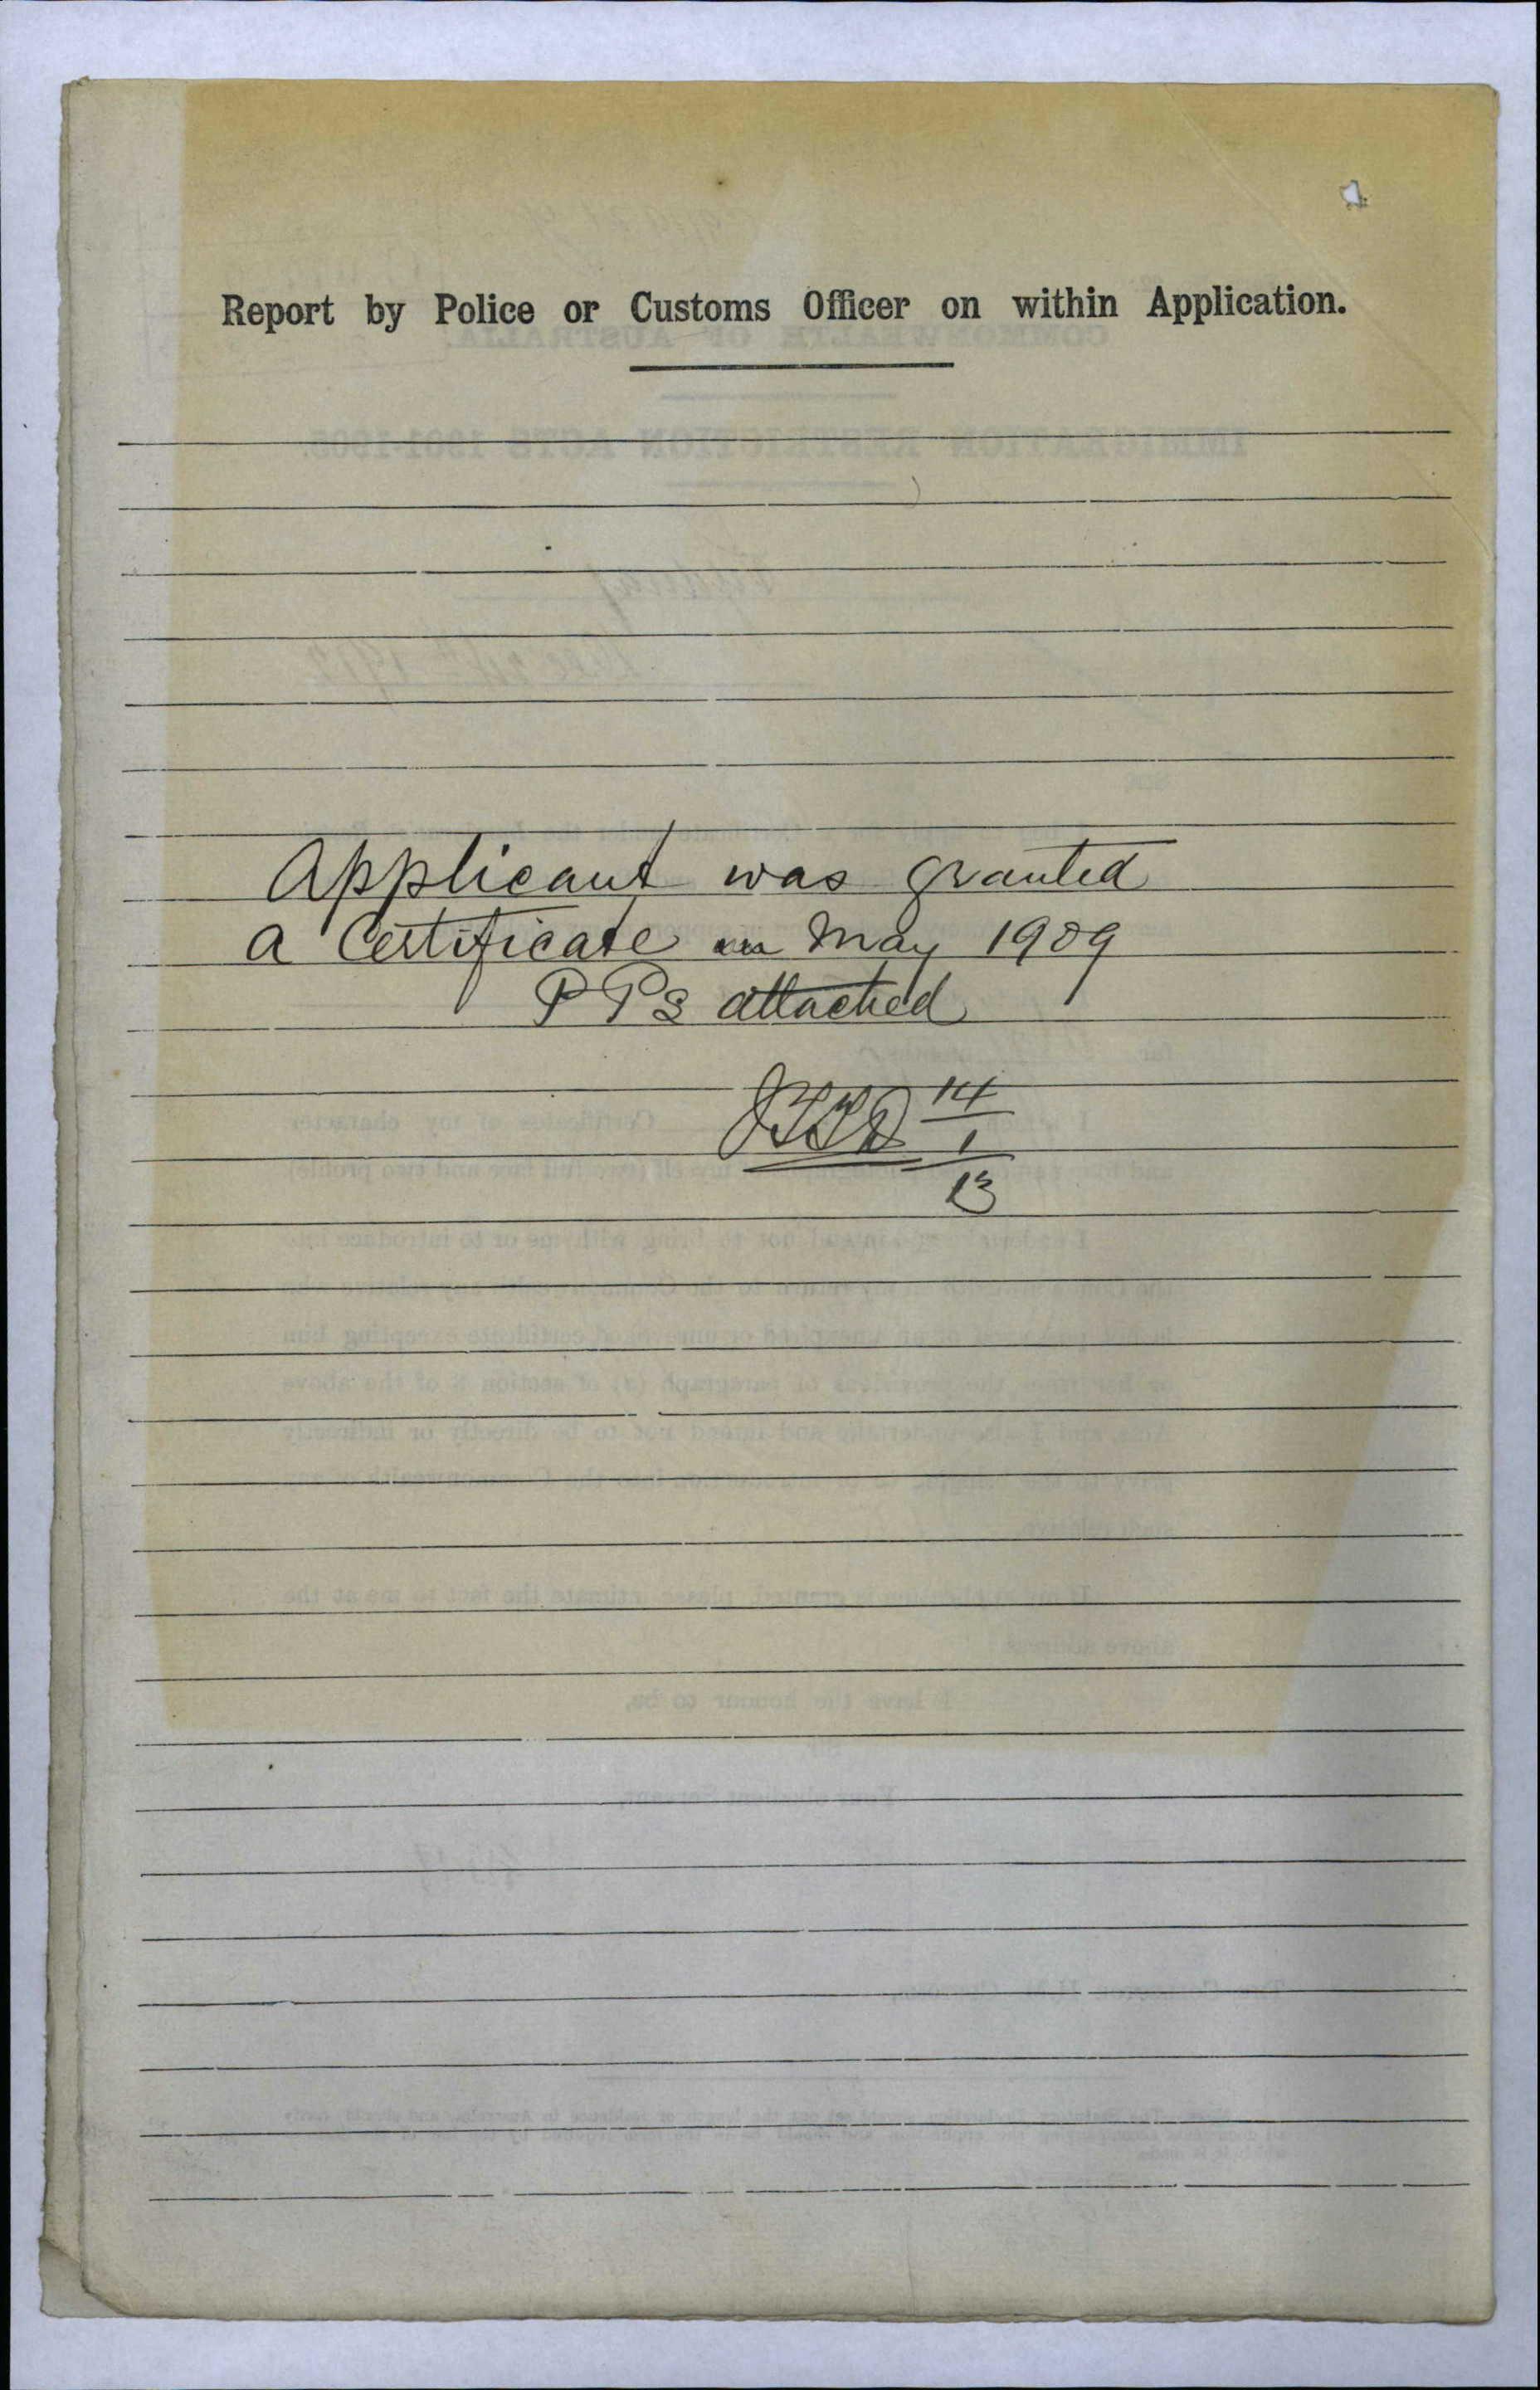 Report by Police or Customs Officer on within Application.
Applicant was granted
a Certificate in May 1909
P Ps attached
14
1
13